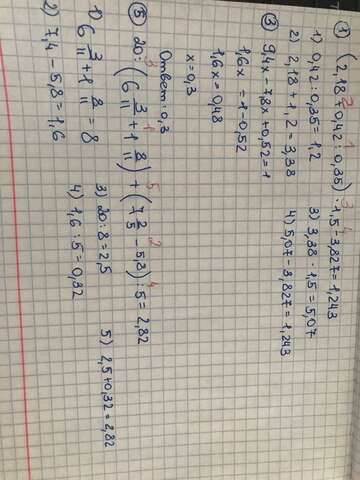 2 1 3 4
① (2,18 + 0,42 : 0,35) · 1,5 - 3,827 = 1,243
1) 0,42 : 0,35 = 1,2 3) 3,38 · 1,5 = 5,07
2) 2,18 + 1,2 = 3,38 4) 5,07 - 3,827 = 1,243
③ 9,4x - 7,8x + 0,52 = 1
1,6x = 1 - 0,52
1,6x = 0,48
x = 0,3
Ответ: 0,3
3 1 5 2 4
⑤ 20 : (6 3/11 + 1 8/11) + (7 2/5 - 5,8) : 5 = 2,82
1) 6 3/11 + 1 8/11 = 8 3) 20 : 8 = 2,5 5) 2,5 + 0,32 = 2,82
2) 7,4 - 5,8 = 1,6 4) 1,6 : 5 = 0,32